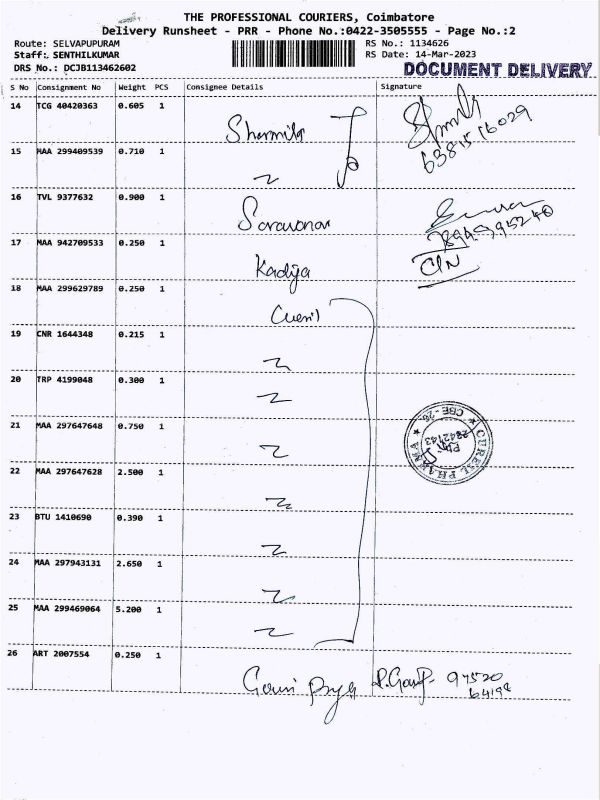 THE PROFESSIONAL COURIERS, Coimbatore
Delivery Runsheet - PRR - Phone No.:0422-3505555 - Page No.:2
Route: SELVAPUPURAM
RS No.: 1134626
Staff: SENTHILKUMAR
RS Date: 14-Mar-2023
DRS No.: DCJB113462602
DOCUMENT DELIVERY
S No Consignment No Weight PCS Consignee Details Signature
14 TCG 40420363 0.605 1
Sharmila
63815 16029
15 MAA 299409539 0.710 1
16 TVL 9377632 0.900 1
Saravanan
17 MAA 942709533 0.250 1
Kadija
18 MAA 299629789 0.250 1
19 CNR 1644348 0.215 1
20 TRP 4199048 0.300 1
21 MAA 297647648 0.750 1
CURESL PHARMA ★ CBE - 26 ★
2342143
22 MAA 297647628 2.500 1
23 BTU 1410690 0.390 1
24 MAA 297943131 2.650 1
25 MAA 299469064 5.200 1
26 ART 2007554 0.250 1
Gowri
97520
64198